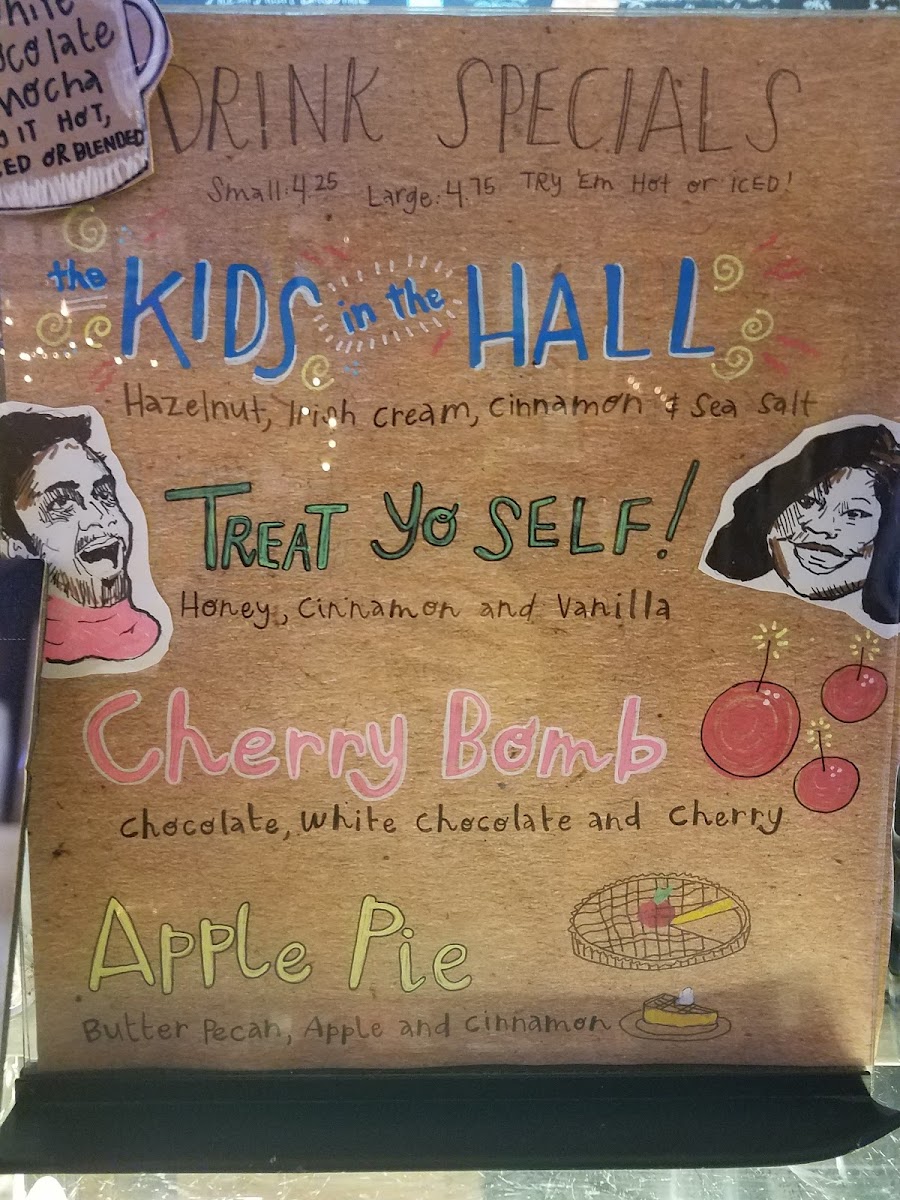 mocha
IT HOT,
OR BLENDED
DRINK SPECIALS
Small: 4.25 Large: 4.75 TRY 'Em Hot or iCED!
the KIDS in the HALL
Hazelnut, Irish cream, cinnamon & sea salt
TREAT yo SELF!
Honey, cinnamon and vanilla
Cherry Bomb
chocolate, white chocolate and cherry
Apple Pie
Butter pecan, Apple and cinnamon